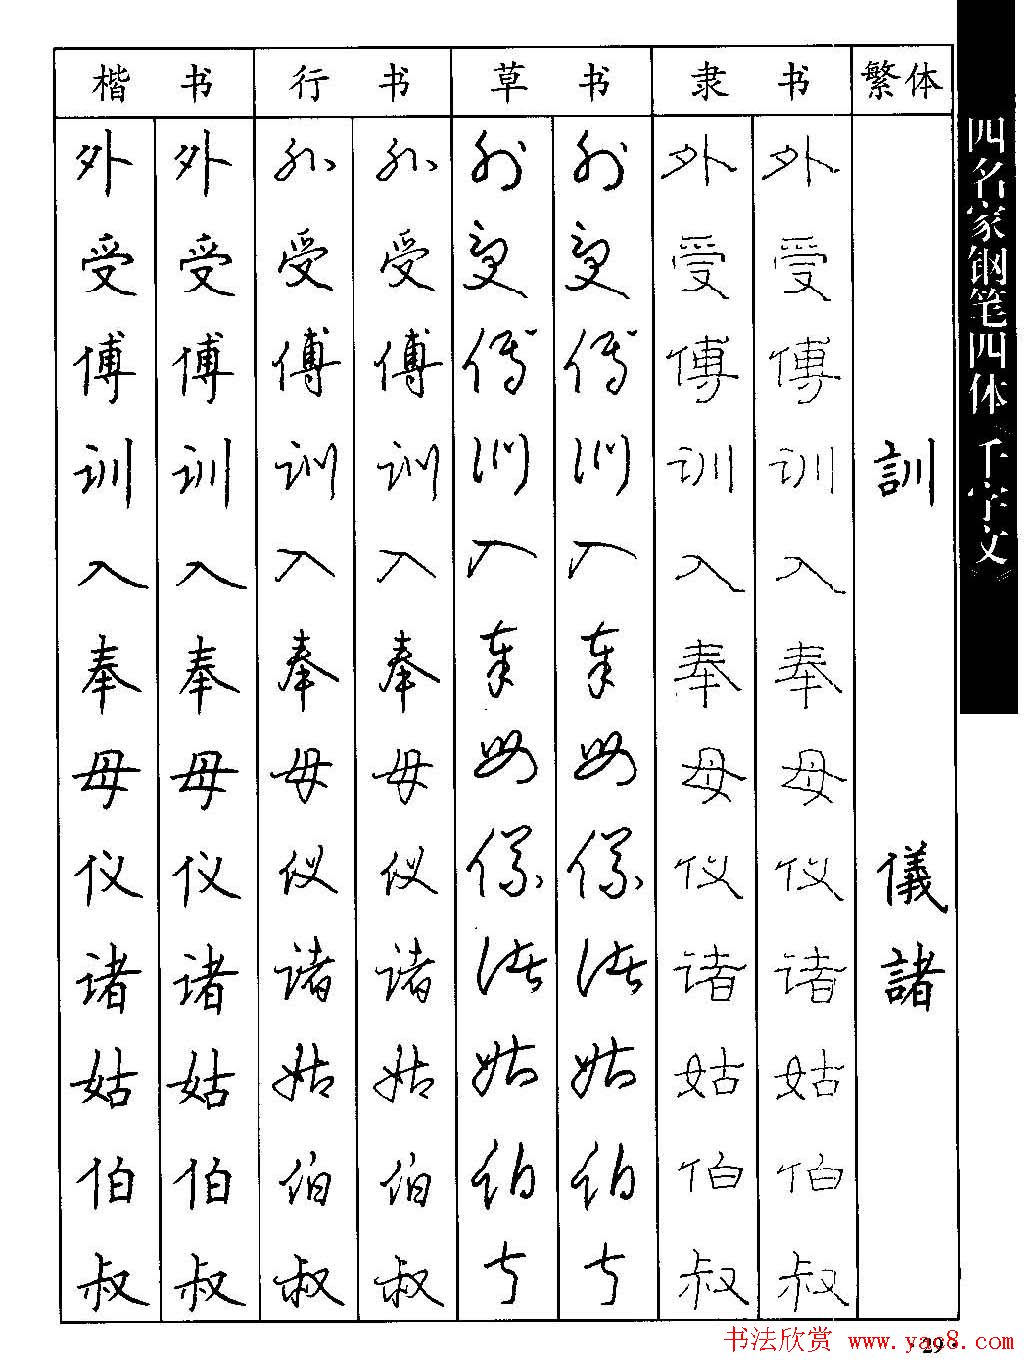 楷书 行书 草书 隶书 繁体
外 外 外 外 外 外 外 外
受 受 受 受 受 受 受 受
傅 傅 傅 傅 傅 傅 傅 傅
训 训 训 训 训 训 训 训 訓
入 入 入 入 入 入 入 入
奉 奉 奉 奉 奉 奉 奉 奉
母 母 母 母 母 母 母 母
仪 仪 仪 仪 仪 仪 仪 仪 儀
诸 诸 诸 诸 诸 诸 诸 诸 諸
姑 姑 姑 姑 姑 姑 姑 姑
伯 伯 伯 伯 伯 伯 伯 伯
叔 叔 叔 叔 叔 叔 叔 叔
四名家钢笔四体《千字文》
29
书法欣赏 www.yac8.com